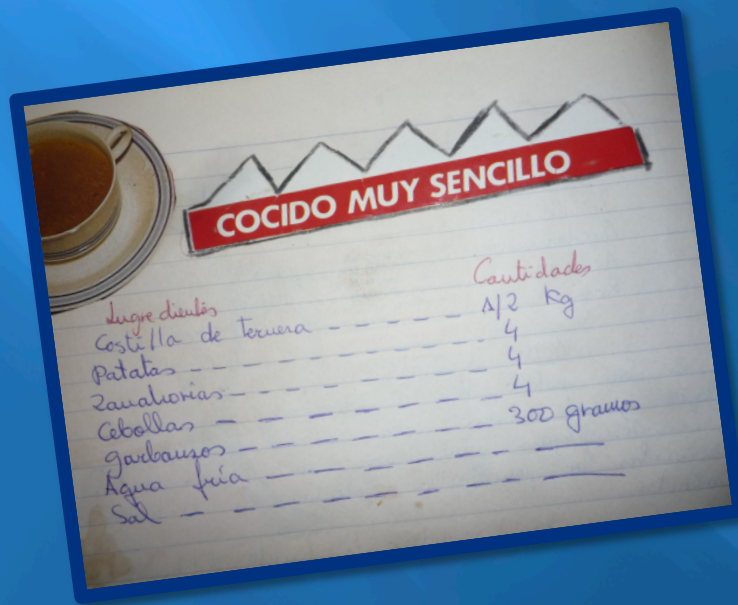 COCIDO MUY SENCILLO
Ingredientes Cantidades
Costilla de ternera ------ 1/2 Kg
Patatas --------- 4
Zanahorias -------- 4
Cebollas -------- 4
garbanzos -------- 300 gramos
Agua fría -------- ——
Sal -------- ——